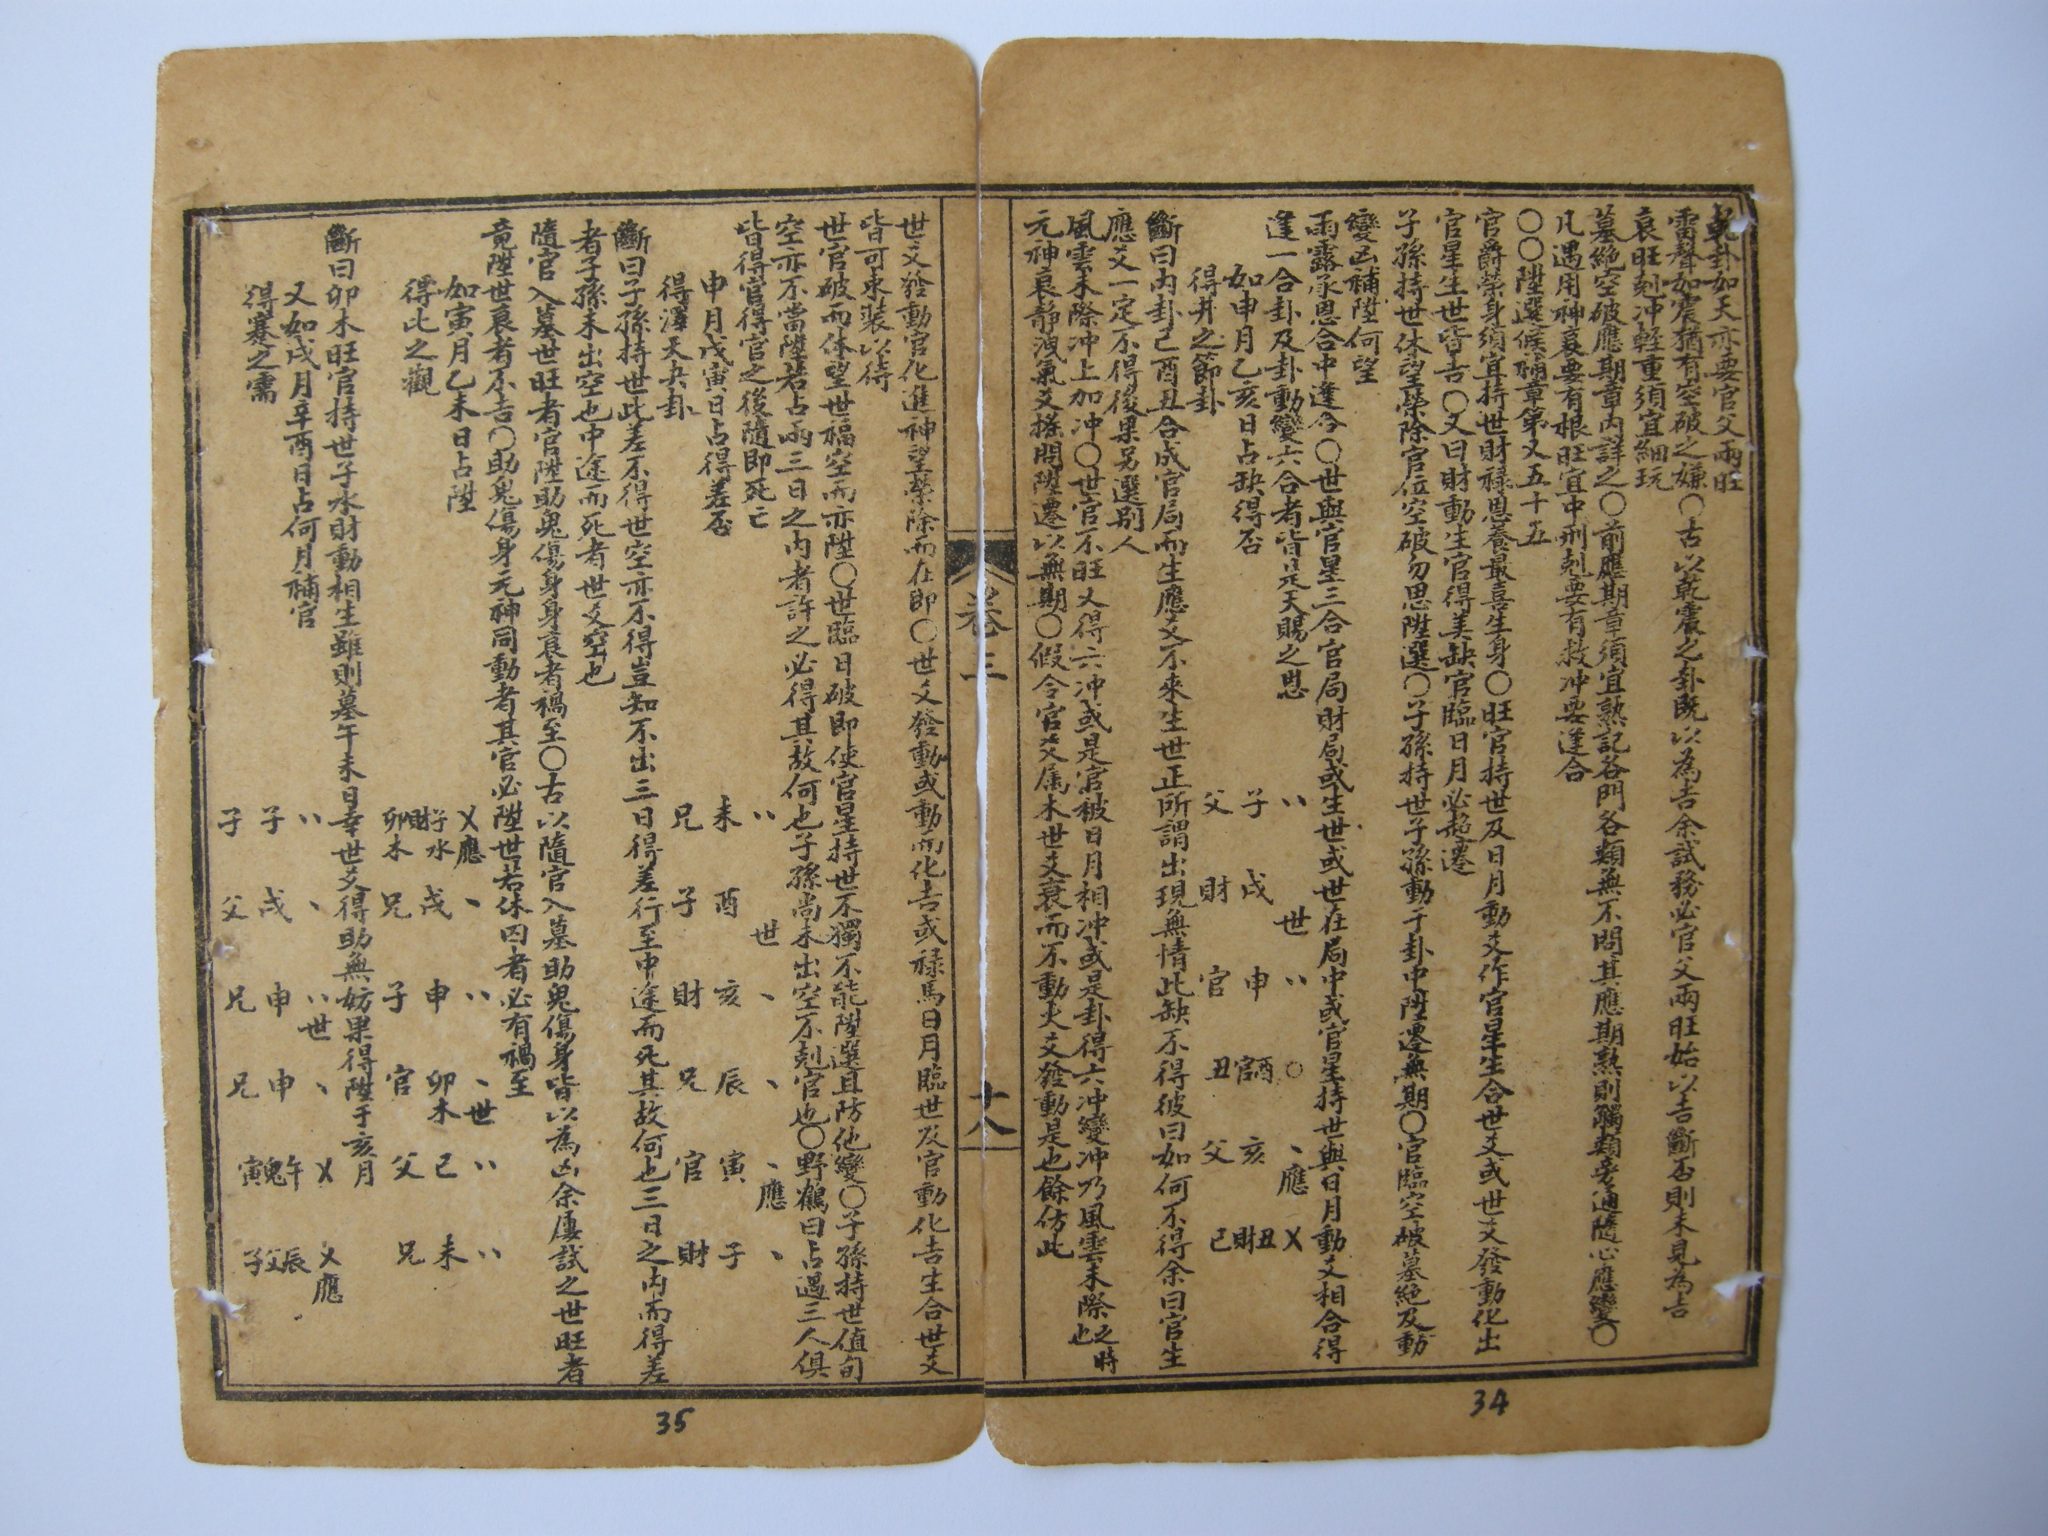 乾卦如天亦要官父兩旺
雷聲如震猶有空破之嫌〇古以乾震之卦既以為吉余試務必官父兩旺始以吉斷否則未見為吉
衰旺剋冲輕重須宜細玩
墓絕空破應期章內詳之〇前應期章須宜熟記各門各類無不問其應期熟則觸類旁通隨心應變〇
凡遇用神衰要有根旺宜中刑剋要有救冲要逢合
〇〇陞選候補章第又五十五
官爵榮身須宜持世財祿恩養最喜生身〇旺官持世及日月動爻作官星生合世爻或世爻發動化出
官星生世皆吉〇又曰財動生官得美缺官臨日月必超遷
子孫持世休望榮除官位空破勿思陞選〇子孫持世子孫動于卦中陞遷無期〇官臨空破墓絕及動
變凶補陞何望
雨露承恩合中逢合〇世與官星三合官局財局或生世或世在局中或官星持世與日月動爻相合得
逢一合卦及卦動變六合者皆是天賜之恩
如申月乙亥日占缺得否
得井之節卦
父子〃
財戌〃世
官申〃
丑官酉〇
父亥、應
巳財丑乂
斷曰內卦巳酉丑合成官局而生應爻不來生世正所謂出現無情此缺不得彼曰如何不得余曰官生
應爻一定不得後果另選別人
風雲未際冲上加冲〇世官不旺又得六冲或是官被日月相冲或是卦得六冲變冲乃風雲未際之時也
元神衰靜洩氣爻搖問陞遷以無期〇假令官爻属木世爻衰而不動火爻發動是也餘仿此
卷三
十八
世爻發動官化進神望榮除而在即〇世爻發動或動而化吉或祿馬日月臨世及官動化吉生合世爻
皆可束裝以待
世官破而休望世福空而亦陞〇世臨日破即使官星持世不獨不能陞選且防他變〇子孫持世值旬
空亦不當陞若占兩三日之內者許之必得其故何也子孫尚未出空不剋官也〇野鶴曰占遇三人俱
皆得官得官之後隨即死亡
申月戊寅日占得差否
得澤天夬卦
兄未〃
子酉、世
財亥、
兄辰、
官寅、應
財子、
斷曰子孫持世此差不得世空亦不得豈知不出三日得差行至中途而死其故何也三日之內而得差
者子孫未出空也中途而死者世爻空也
隨官入墓世旺者官陞助鬼傷身身衰者禍至〇古以隨官入墓助鬼傷身皆以為凶余屢試之世旺者
竟陞世衰者不吉〇助鬼傷身元神同動者其官必陞世若休囚者必有禍至
如寅月乙未日占陞
得比之觀
卯木財子水乂應
兄戌、
子申〃
官卯木、世
父巳〃
兄未〃
斷曰卯木旺官持世子水財動相生雖則墓午未日幸世爻得助無妨果得陞于亥月
又如戌月辛酉日占何月補官
得蹇之需
子子〃
父戌、
兄申〃世
兄申、
寅鬼午乂
子父辰乂應
34
35